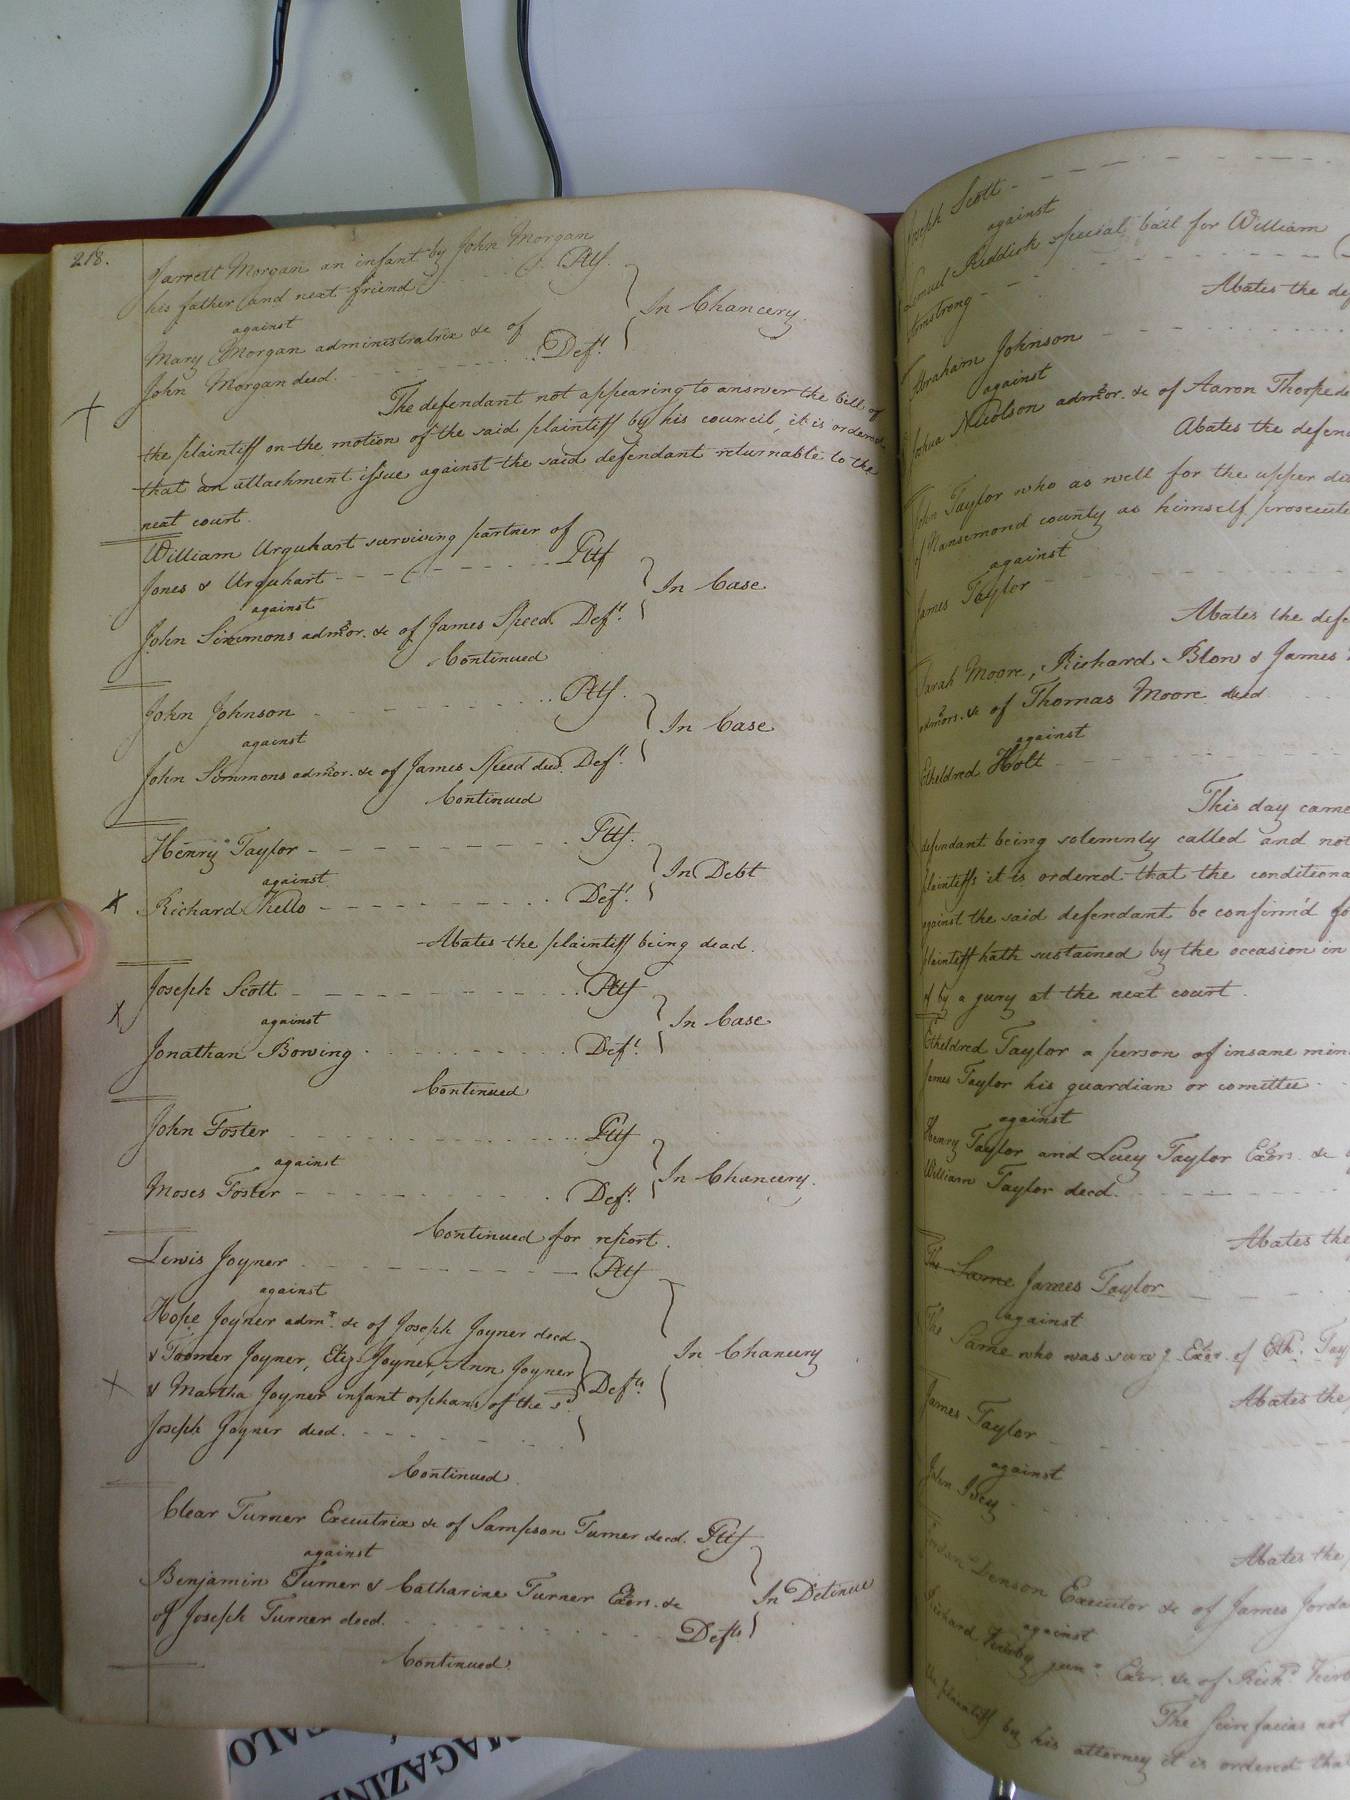 218.
Jarrett Morgan an infant by John Morgan
his father and next friend Pltf.
against
In Chancery.
Mary Morgan administratrix &c of
John Morgan decd. Deft.
The defendant not appearing to answer the bill of
the plaintiff on the motion of the said plaintiff by his council, it is ordered
that an attachment issue against the said defendant returnable to the
next court.
William Urquhart surviving partner of
Jones & Urquhart Pltf
against
In Case
John Simmons admor. &c of James Speed Deft.
Continued
John Johnson Pltf.
against
In Case
John Simmons admor. &c of James Speed decd. Deft.
Continued
Henry Taylor Pltf.
against
In Debt
Richard Kello Deft.
Abates the plaintiff being dead.
Joseph Scott Pltf
against
In Case
Jonathan Bowing Deft.
Continued
John Foster Pltf
against
In Chancery.
Moses Foster Deft.
Continued for report.
Lewis Joyner Pltf
against
Hope Joyner admr. &c of Joseph Joyner decd
& Toomer Joyner, Eliz Joyner, Ann Joyner
In Chancery
& Martha Joyner infant orphans of the sd. Defts.
Joseph Joyner decd.
Continued.
Clear Turner Executrix &c of Sampson Turner decd. Pltf
against
Benjamin Turner & Catharine Turner Exors. &c
In Detinue
of Joseph Turner decd. Defts
Continued.
Joseph Scott
against
Lemuel Riddick special bail for William
Armstrong
Abates the def
Abraham Johnson
against
Joshua Nicolson admor. &c of Aaron Thorpe de
Abates the defen
John Taylor who as well for the upper di
of Nansemond county as himself prosecute
against
James Taylor
Abates the defe
Sarah Moore, Richard Blow & James
admors. &c of Thomas Moore decd
against
Etheldred Holt
This day came
defendant being solemnly called and not
plaintiffs it is ordered that the conditiona
against the said defendant be confirm'd fo
plaintiff hath sustained by the occasion in
of by a jury at the next court.
Etheldred Taylor a person of insane min
James Taylor his guardian or comittee
against
Henry Taylor and Lucy Taylor Exors. &c
William Taylor decd.
Abates the
The Same James Taylor
against
The Same who was surv'g Exor. of Eth. Tay
Abates the
James Taylor
against
John Ivey
Abates the
Jordan Denson Executor &c of James Jorda
against
Richard Kirby junr. Exor. &c of Richd. Kirb
The Scire facias not
the plaintiff by his attorney it is ordered tha
MAGAZINE